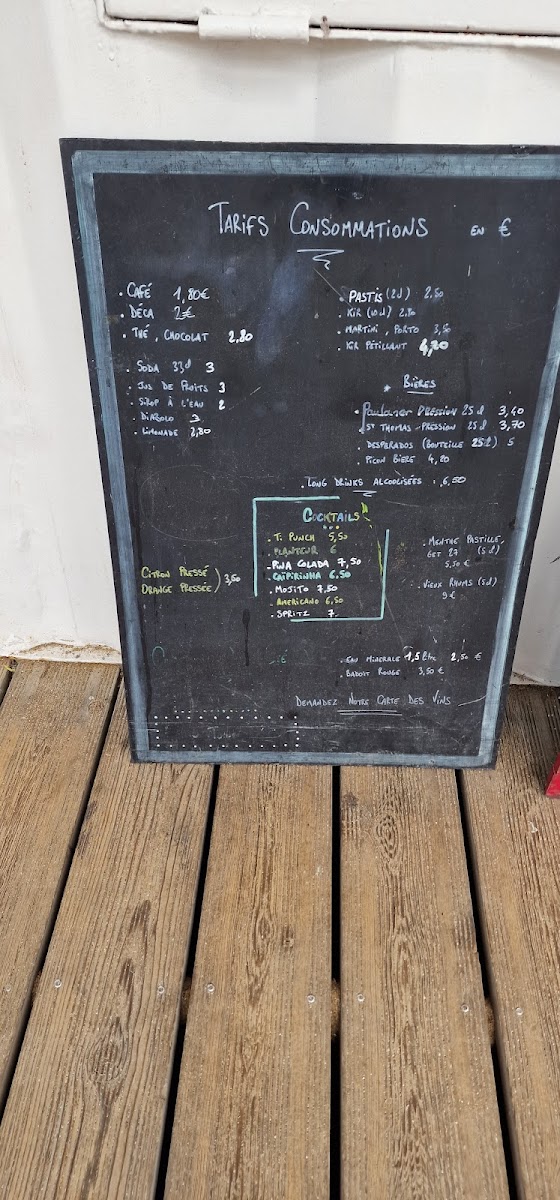 TARIFS CONSOMMATIONS EN €
. CAFÉ 1,80€
. DÉCA 2€
. THÉ, CHOCOLAT 2,80
. SODA 33cl 3
. JUS DE FRUITS 3
. SIROP À L'EAU 2
. DIABOLO 3
. LIMONADE 2,80
. PASTIS (2cl) 2,50
. KIR (10cl) 2,80
. MARTINI, PORTO 3,50
. KIR PÉTILLANT 4,20
. BIÈRES
. Paulaner PRESSION 25cl 3,40
. ST THOMAS - PRESSION 25cl 3,70
. DESPERADOS (BOUTEILLE 25cl) 5
. PICON BIÈRE 4,20
. LONG DRINKS ALCOOLISÉES : 6,50
COCKTAILS
. TI PUNCH 5,50
. PLANTEUR 6
. PINA COLADA 7,50
. CAÏPIRINHA 6,50
. MOJITO 7,50
. AMERICANO 6,50
. SPRITZ 7.
CITRON PRESSÉ
ORANGE PRESSÉE ) 3,50
. MENTHE PASTILLE,
GET 27 (5cl)
5,50 €
. VIEUX RHUMS (5cl)
9 €
. EAU MINERALE 1,5 litre 2,50 €
. BADOIT ROUGE 3,50 €
DEMANDEZ NOTRE CARTE DES VINS